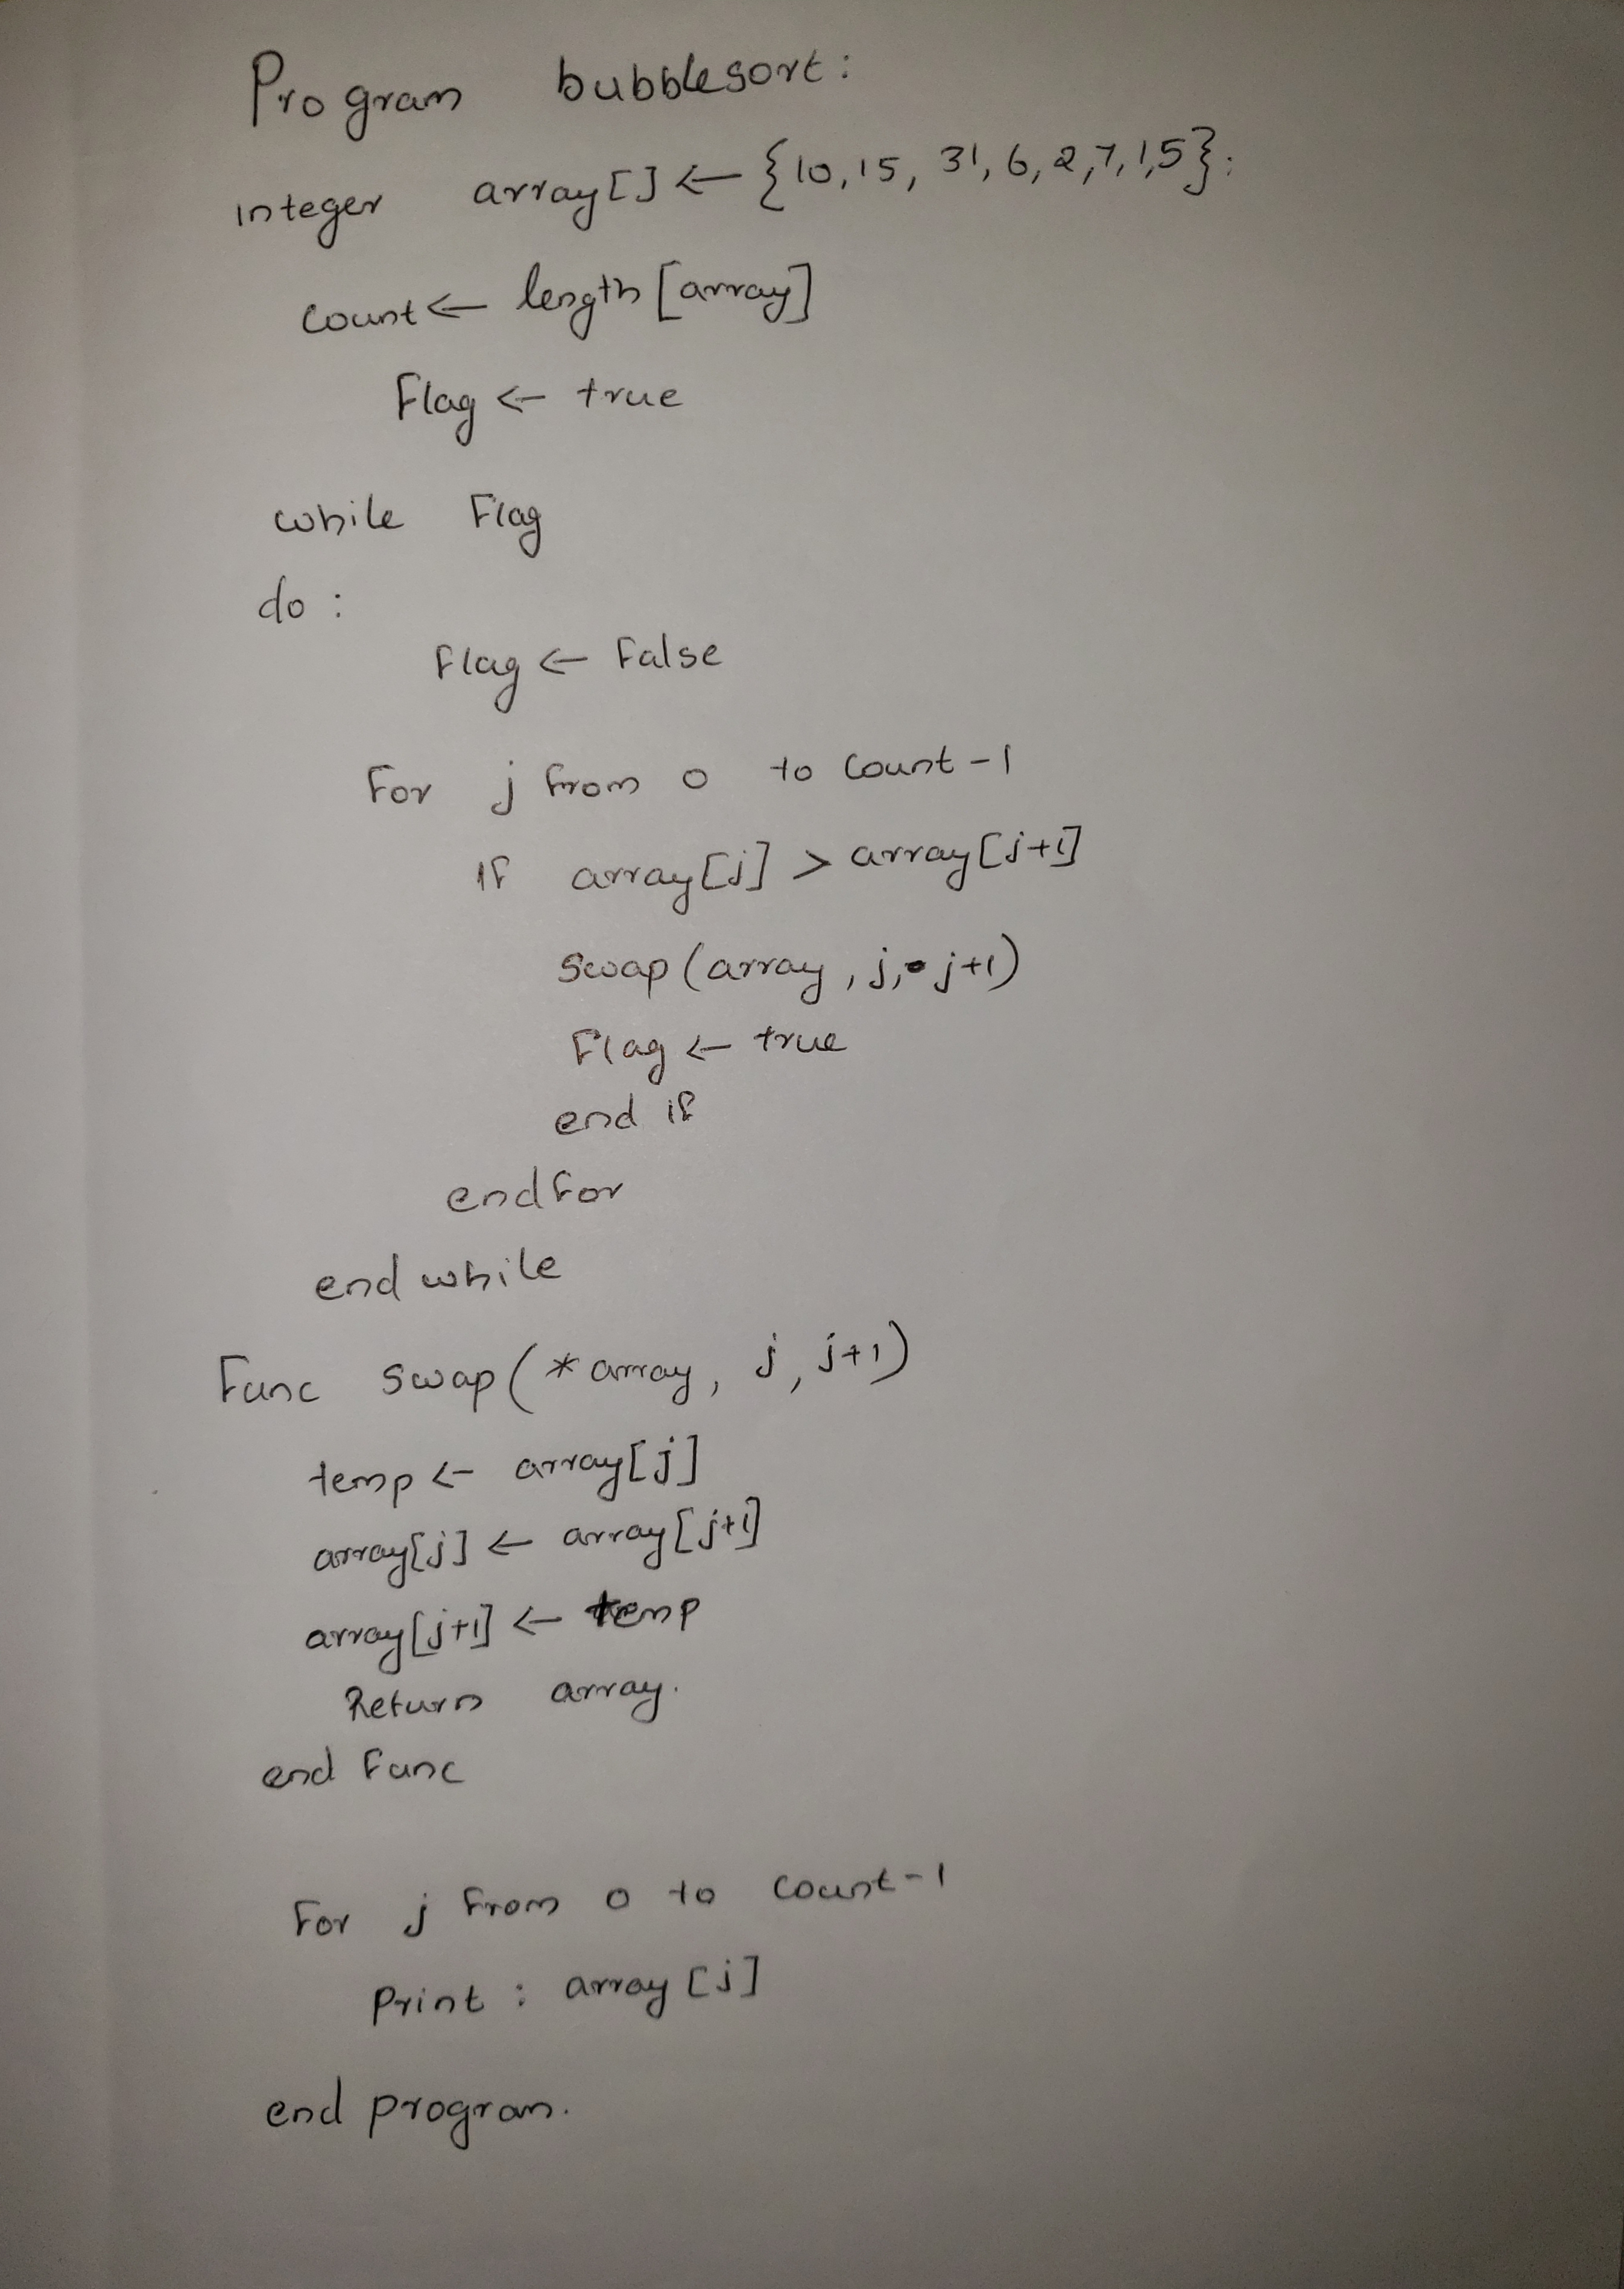 Program bubblesort:
integer array[] ← {10,15, 31, 6, 2,7,1,5};
count ← length [array]
Flag ← true
while Flag
do :
Flag ← False
For j from 0 to count-1
if array[j] > array[j+1]
swap (array, j, j+1)
Flag ← true
end if
endfor
end while
Func swap (*array, j, j+1)
temp ← array[j]
array[j] ← array[j+1]
array[j+1] ← temp
Return array.
end Func
For j from 0 to count-1
Print : array [j]
end program.